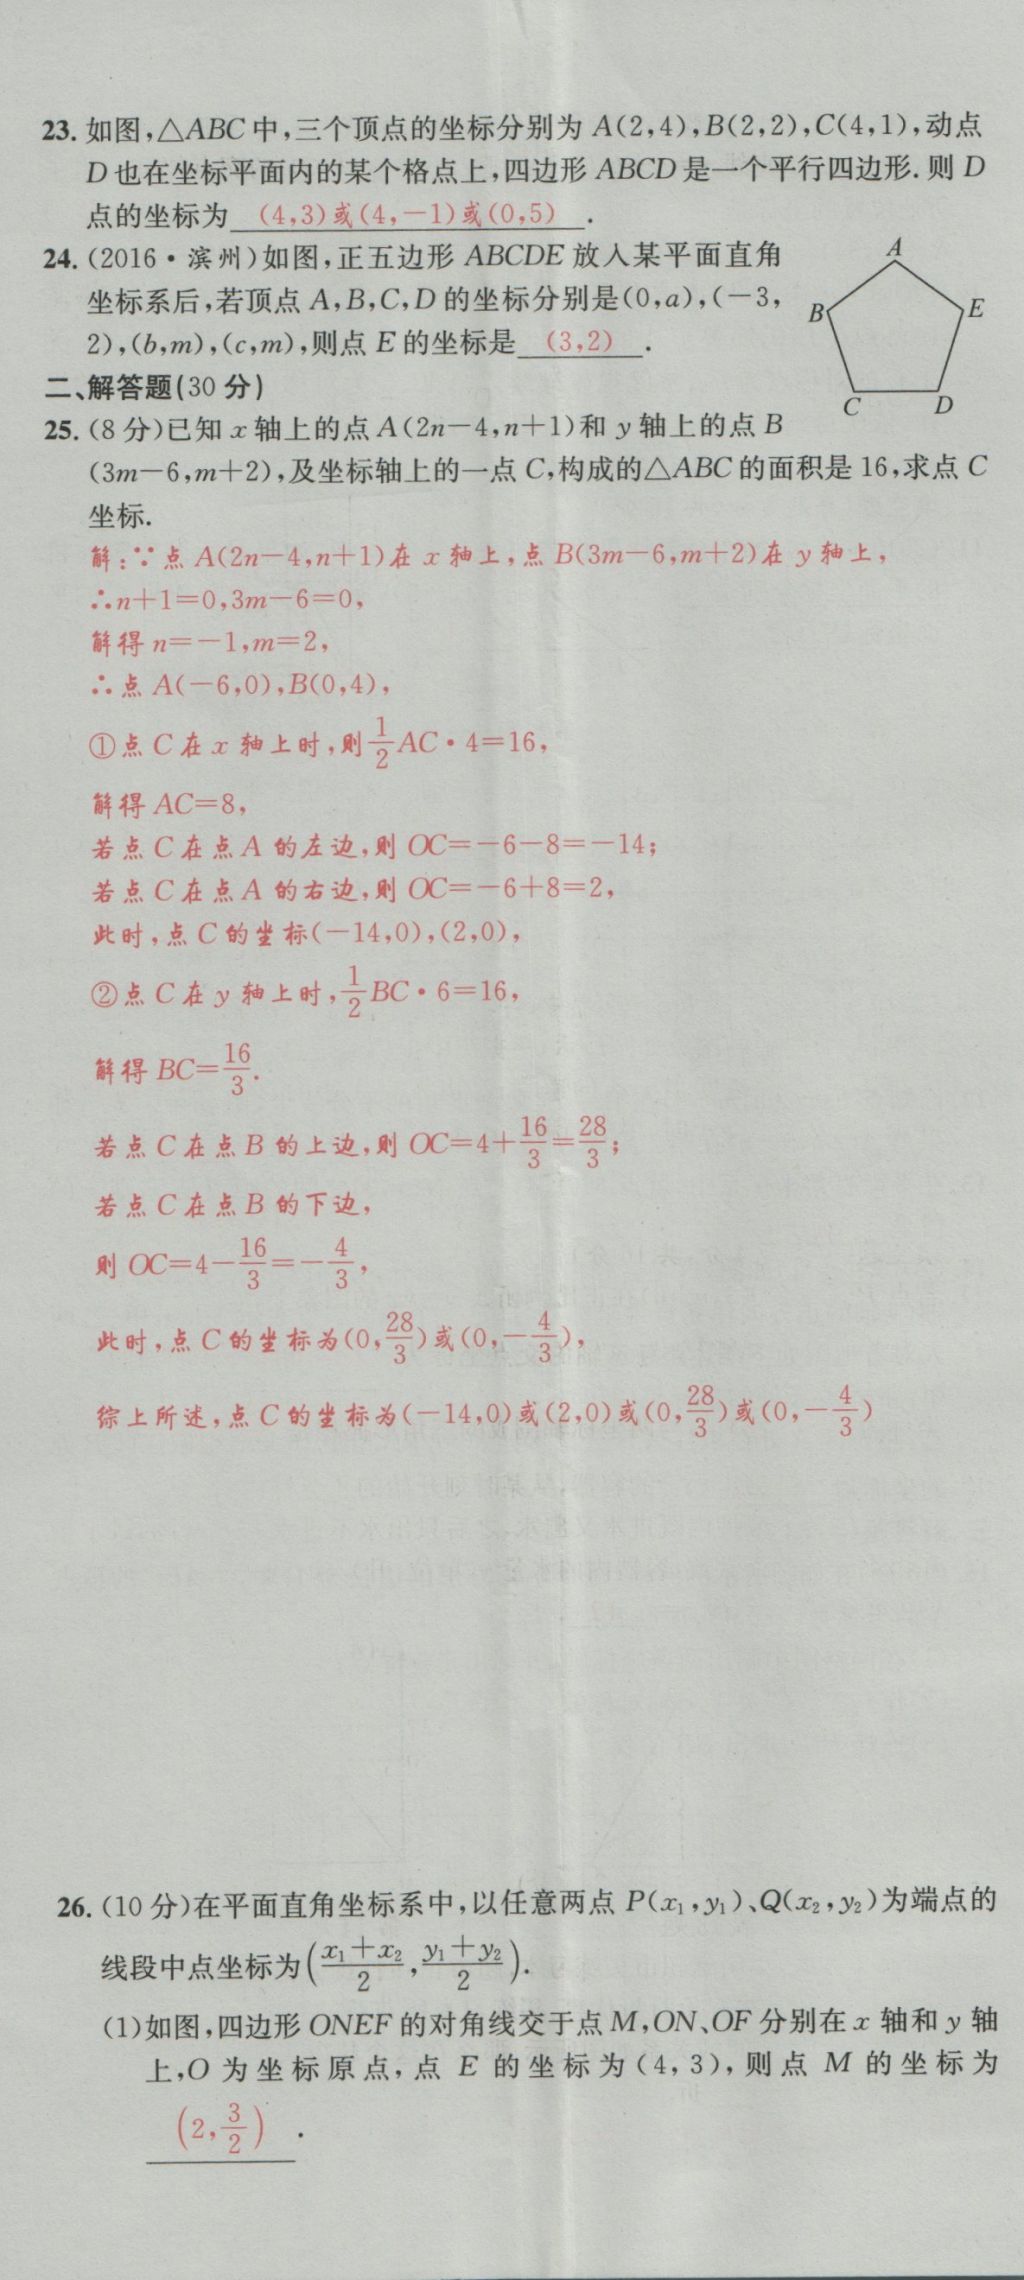 23. 如图,△ABC中,三个顶点的坐标分别为 A(2,4),B(2,2),C(4,1),动点
D也在坐标平面内的某个格点上,四边形 ABCD是一个平行四边形.则 D
点的坐标为 (4,3)或(4,-1)或(0,5) .
24. (2016·滨州)如图,正五边形 ABCDE 放入某平面直角
坐标系后,若顶点 A,B,C,D的坐标分别是(0,a),(-3,
2),(b,m),(c,m),则点 E的坐标是 (3,2) .
A
B
E
C
D
二、解答题(30分)
25. (8分)已知 x轴上的点 A(2n-4,n+1)和 y轴上的点 B
(3m-6,m+2),及坐标轴上的一点 C,构成的△ABC的面积是16,求点 C
坐标.
解:∵点 A(2n-4,n+1)在 x轴上,点 B(3m-6,m+2)在 y轴上,
∴n+1=0,3m-6=0,
解得 n=-1,m=2,
∴点 A(-6,0),B(0,4),
①点 C在 x轴上时,则 1/2 AC·4=16,
解得 AC=8,
若点 C在点A的左边,则 OC=-6-8=-14;
若点 C在点A的右边,则 OC=-6+8=2,
此时,点 C的坐标(-14,0),(2,0),
②点 C在 y轴上时,1/2 BC·6=16,
解得 BC=16/3.
若点 C在点B的上边,则 OC=4+16/3=28/3;
若点 C在点B的下边,
则 OC=4-16/3=-4/3,
此时,点 C的坐标为(0,28/3)或(0,-4/3),
综上所述,点 C的坐标为(-14,0)或(2,0)或(0,28/3)或(0,-4/3)
26. (10分)在平面直角坐标系中,以任意两点 P(x₁,y₁)、Q(x₂,y₂)为端点的
线段中点坐标为((x₁+x₂)/2,(y₁+y₂)/2).
(1)如图,四边形 ONEF的对角线交于点M,ON、OF分别在 x轴和 y轴
上,O为坐标原点,点 E的坐标为(4,3),则点 M的坐标为
(2,3/2) .